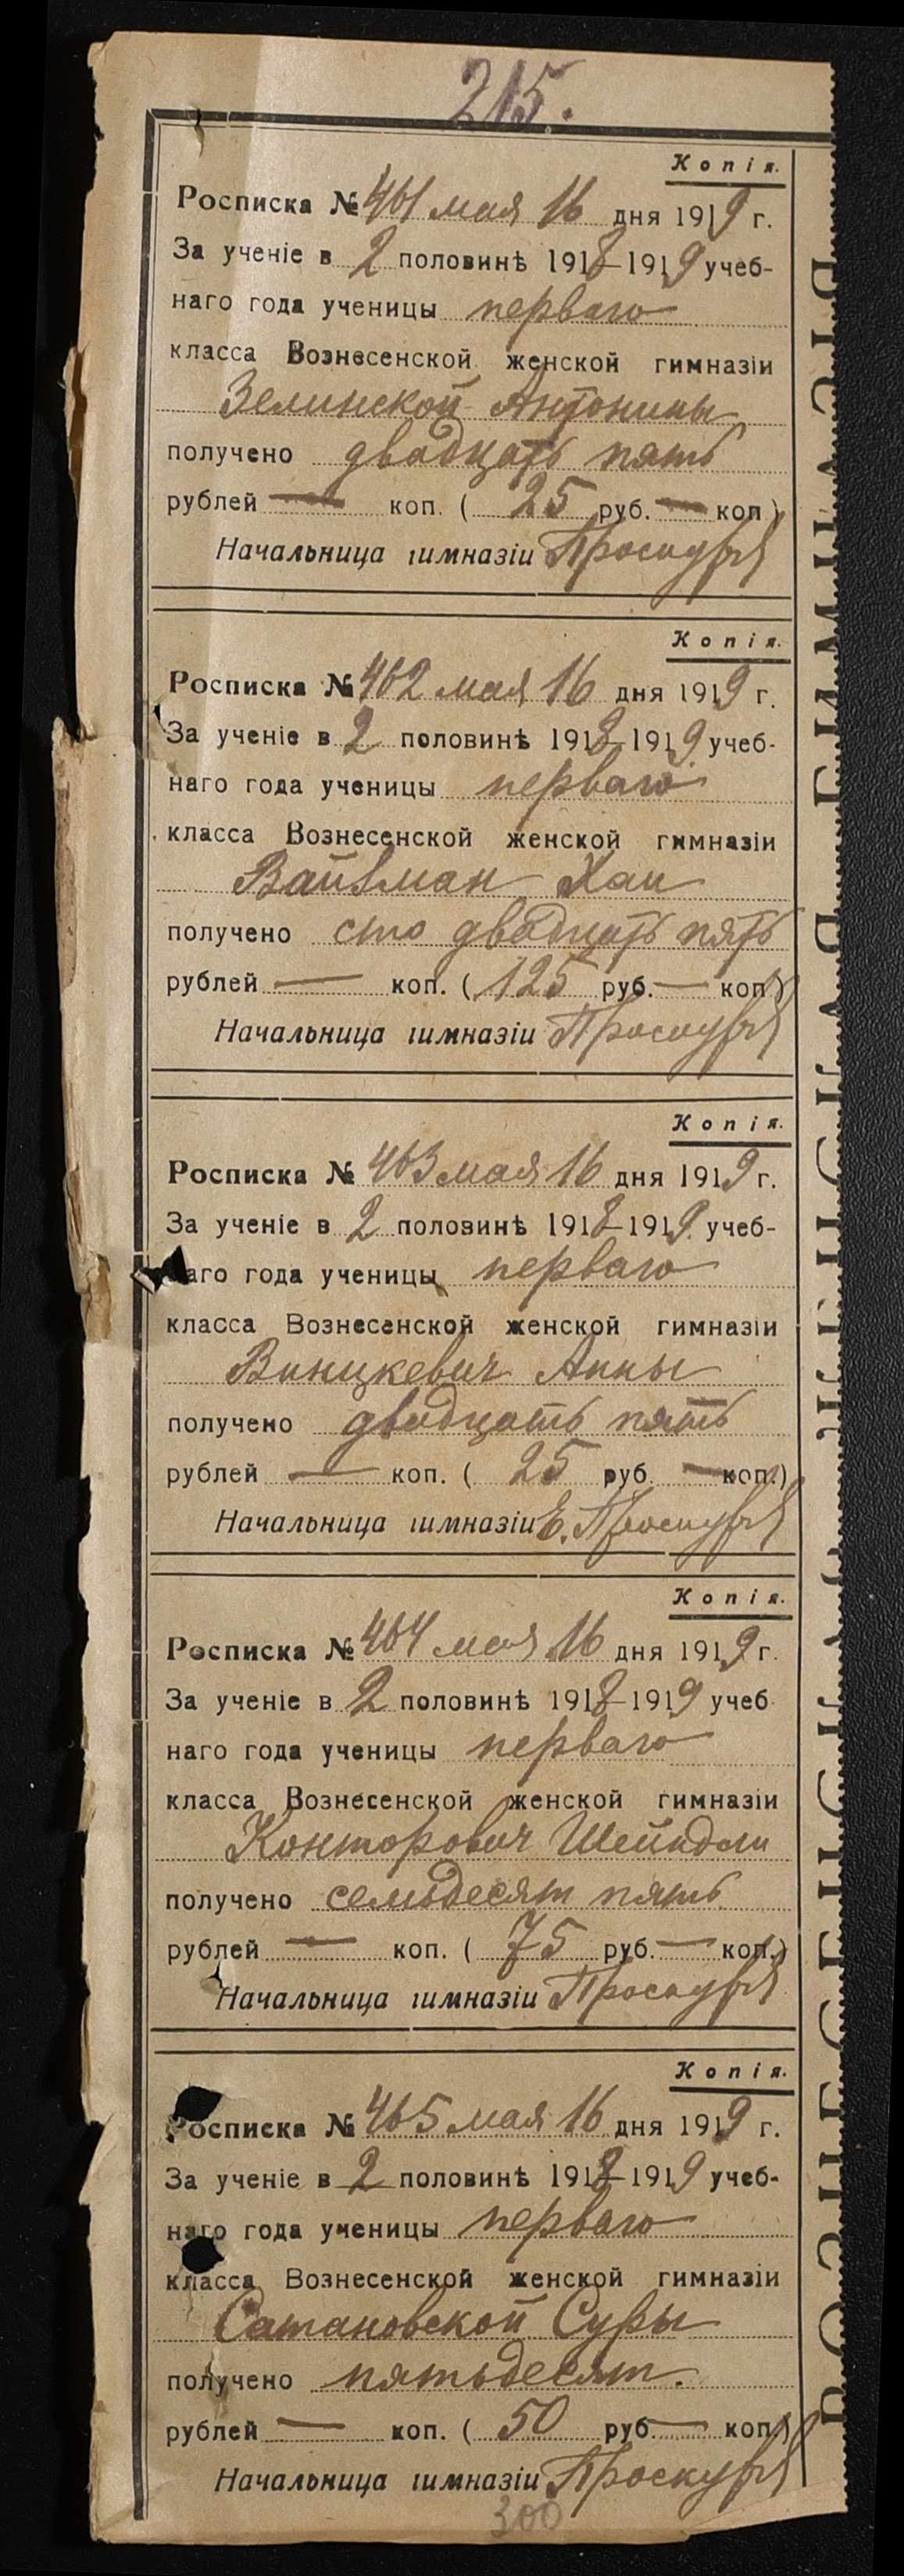 215.
Копія.
Росписка № 461 мая 16 дня 1919 г.
За ученіе в 2 половинѣ 1918–1919 учеб-
наго года ученицы перваго
класса Вознесенской женской гимназіи
Зелинской Антонины
получено двадцать пять
рублей — коп. ( 25 руб. — коп )
Начальница гимназіи
Копія.
Росписка № 462 мая 16 дня 1919 г.
За ученіе в 2 половинѣ 1918–1919 учеб-
наго года ученицы перваго
класса Вознесенской женской гимназіи
Вайсман Хаи
получено сто двадцать пять
рублей — коп. ( 125 руб. — коп )
Начальница гимназіи
Копія.
Росписка № 463 мая 16 дня 1919 г.
За ученіе в 2 половинѣ 1918–1919 учеб-
наго года ученицы перваго
класса Вознесенской женской гимназіи
Винцкевич Анны
получено двадцать пять
рублей — коп. ( 25 руб. — коп.)
Начальница гимназіи Е.
Копія.
Росписка № 464 мая 16 дня 1919 г.
За ученіе в 2 половинѣ 1918–1919 учеб
наго года ученицы перваго
класса Вознесенской женской гимназіи
Конторович Шейндли
получено семьдесят пять
рублей — коп. ( 75 руб. — коп.)
Начальница гимназіи
Копія.
Росписка № 465 мая 16 дня 1919 г.
За ученіе в 2 половинѣ 1918–1919 учеб-
наго года ученицы перваго
класса Вознесенской женской гимназіи
Сатановской Суры
получено пятьдесят.
рублей — коп. ( 50 руб. — коп )
Начальница гимназіи
300